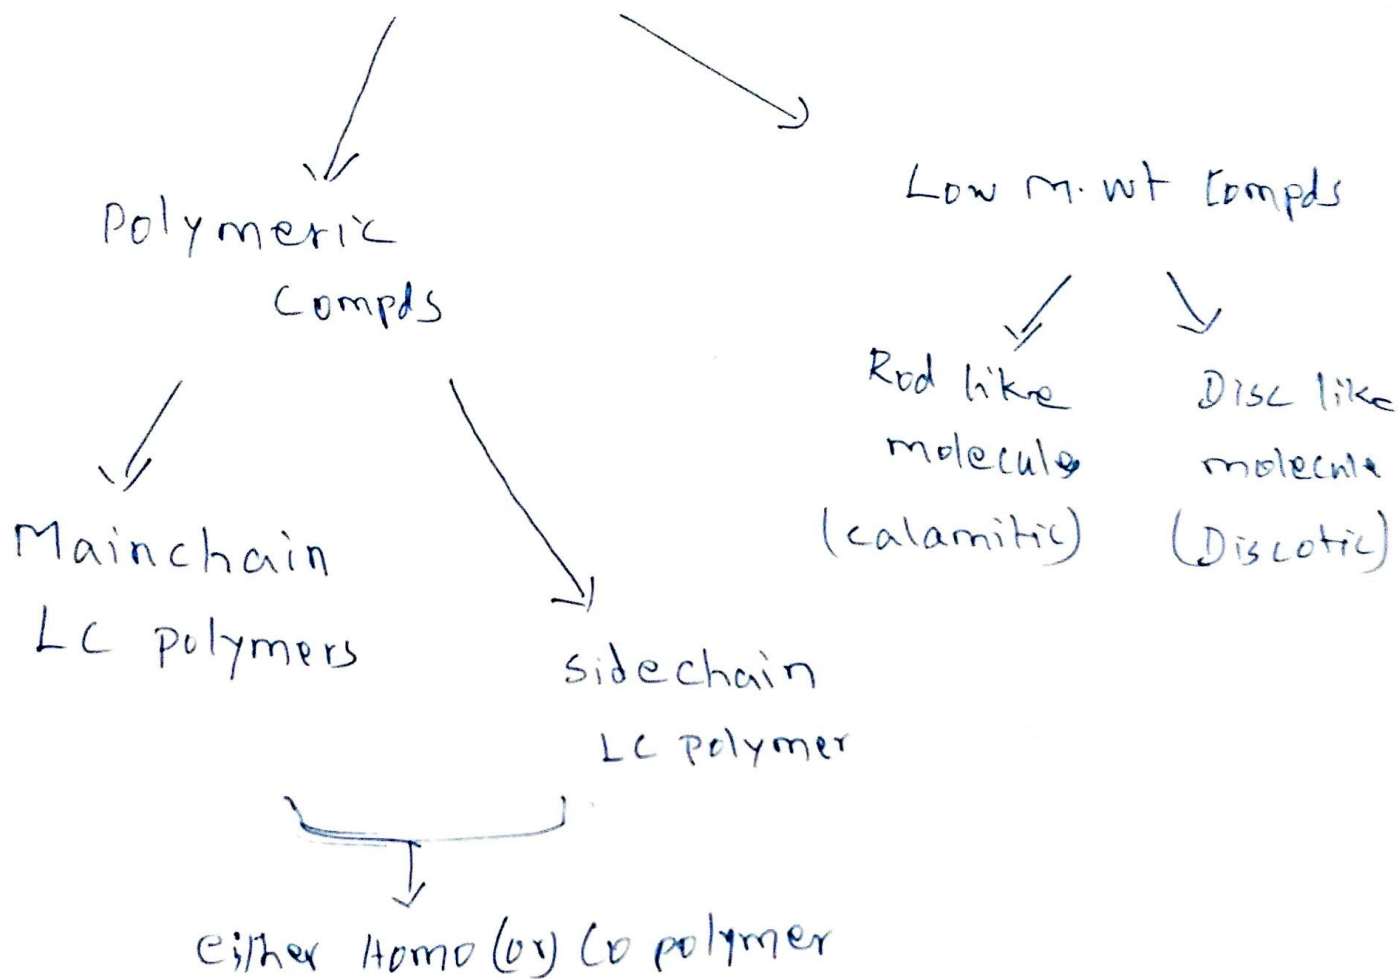 Polymeric
Compds
Low m.wt Compds
Rod like
molecules
(calamitic)
Disc like
molecule
(Discotic)
Mainchain
LC polymers
sidechain
LC polymer
either Homo (or) Co polymer